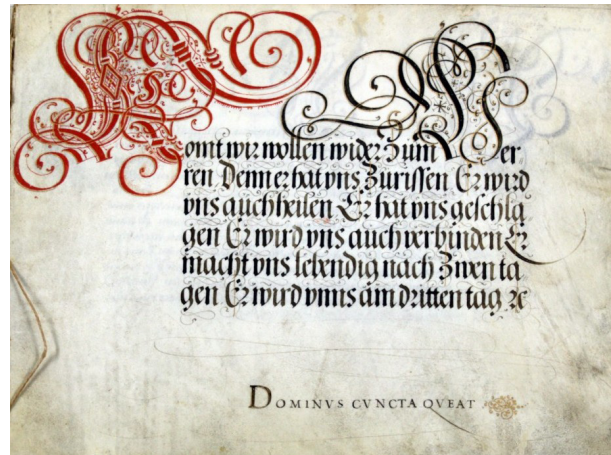 Komt wir wollen wider Zum Her
ren Denn er hat vns Zurissen Er wird
vns auch heilen Er hat vns geschla
gen Er wird vns auch verbinden Er
macht vns lebendig nach Zwen ta
gen Er wird vnns am dritten tag ꝛc
DOMINVS CVNCTA QVEAT